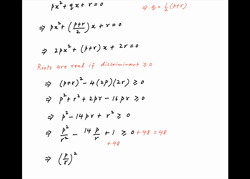 px² + qx + r = 0 ⇒ q = ½(p+r)
⇒ px² + (p+r/2)x + r = 0
⇒ 2px² + (p+r)x + 2r = 0
Roots are real if discriminant ≥ 0
⇒ (p+r)² - 4(2p)(2r) ≥ 0
⇒ p² + r² + 2pr - 16pr ≥ 0
⇒ p² - 14pr + r² ≥ 0
⇒ p²/r² - 14 p/r + 1 ≥ 0 + 48 = 48
+48
⇒ (p/r)²